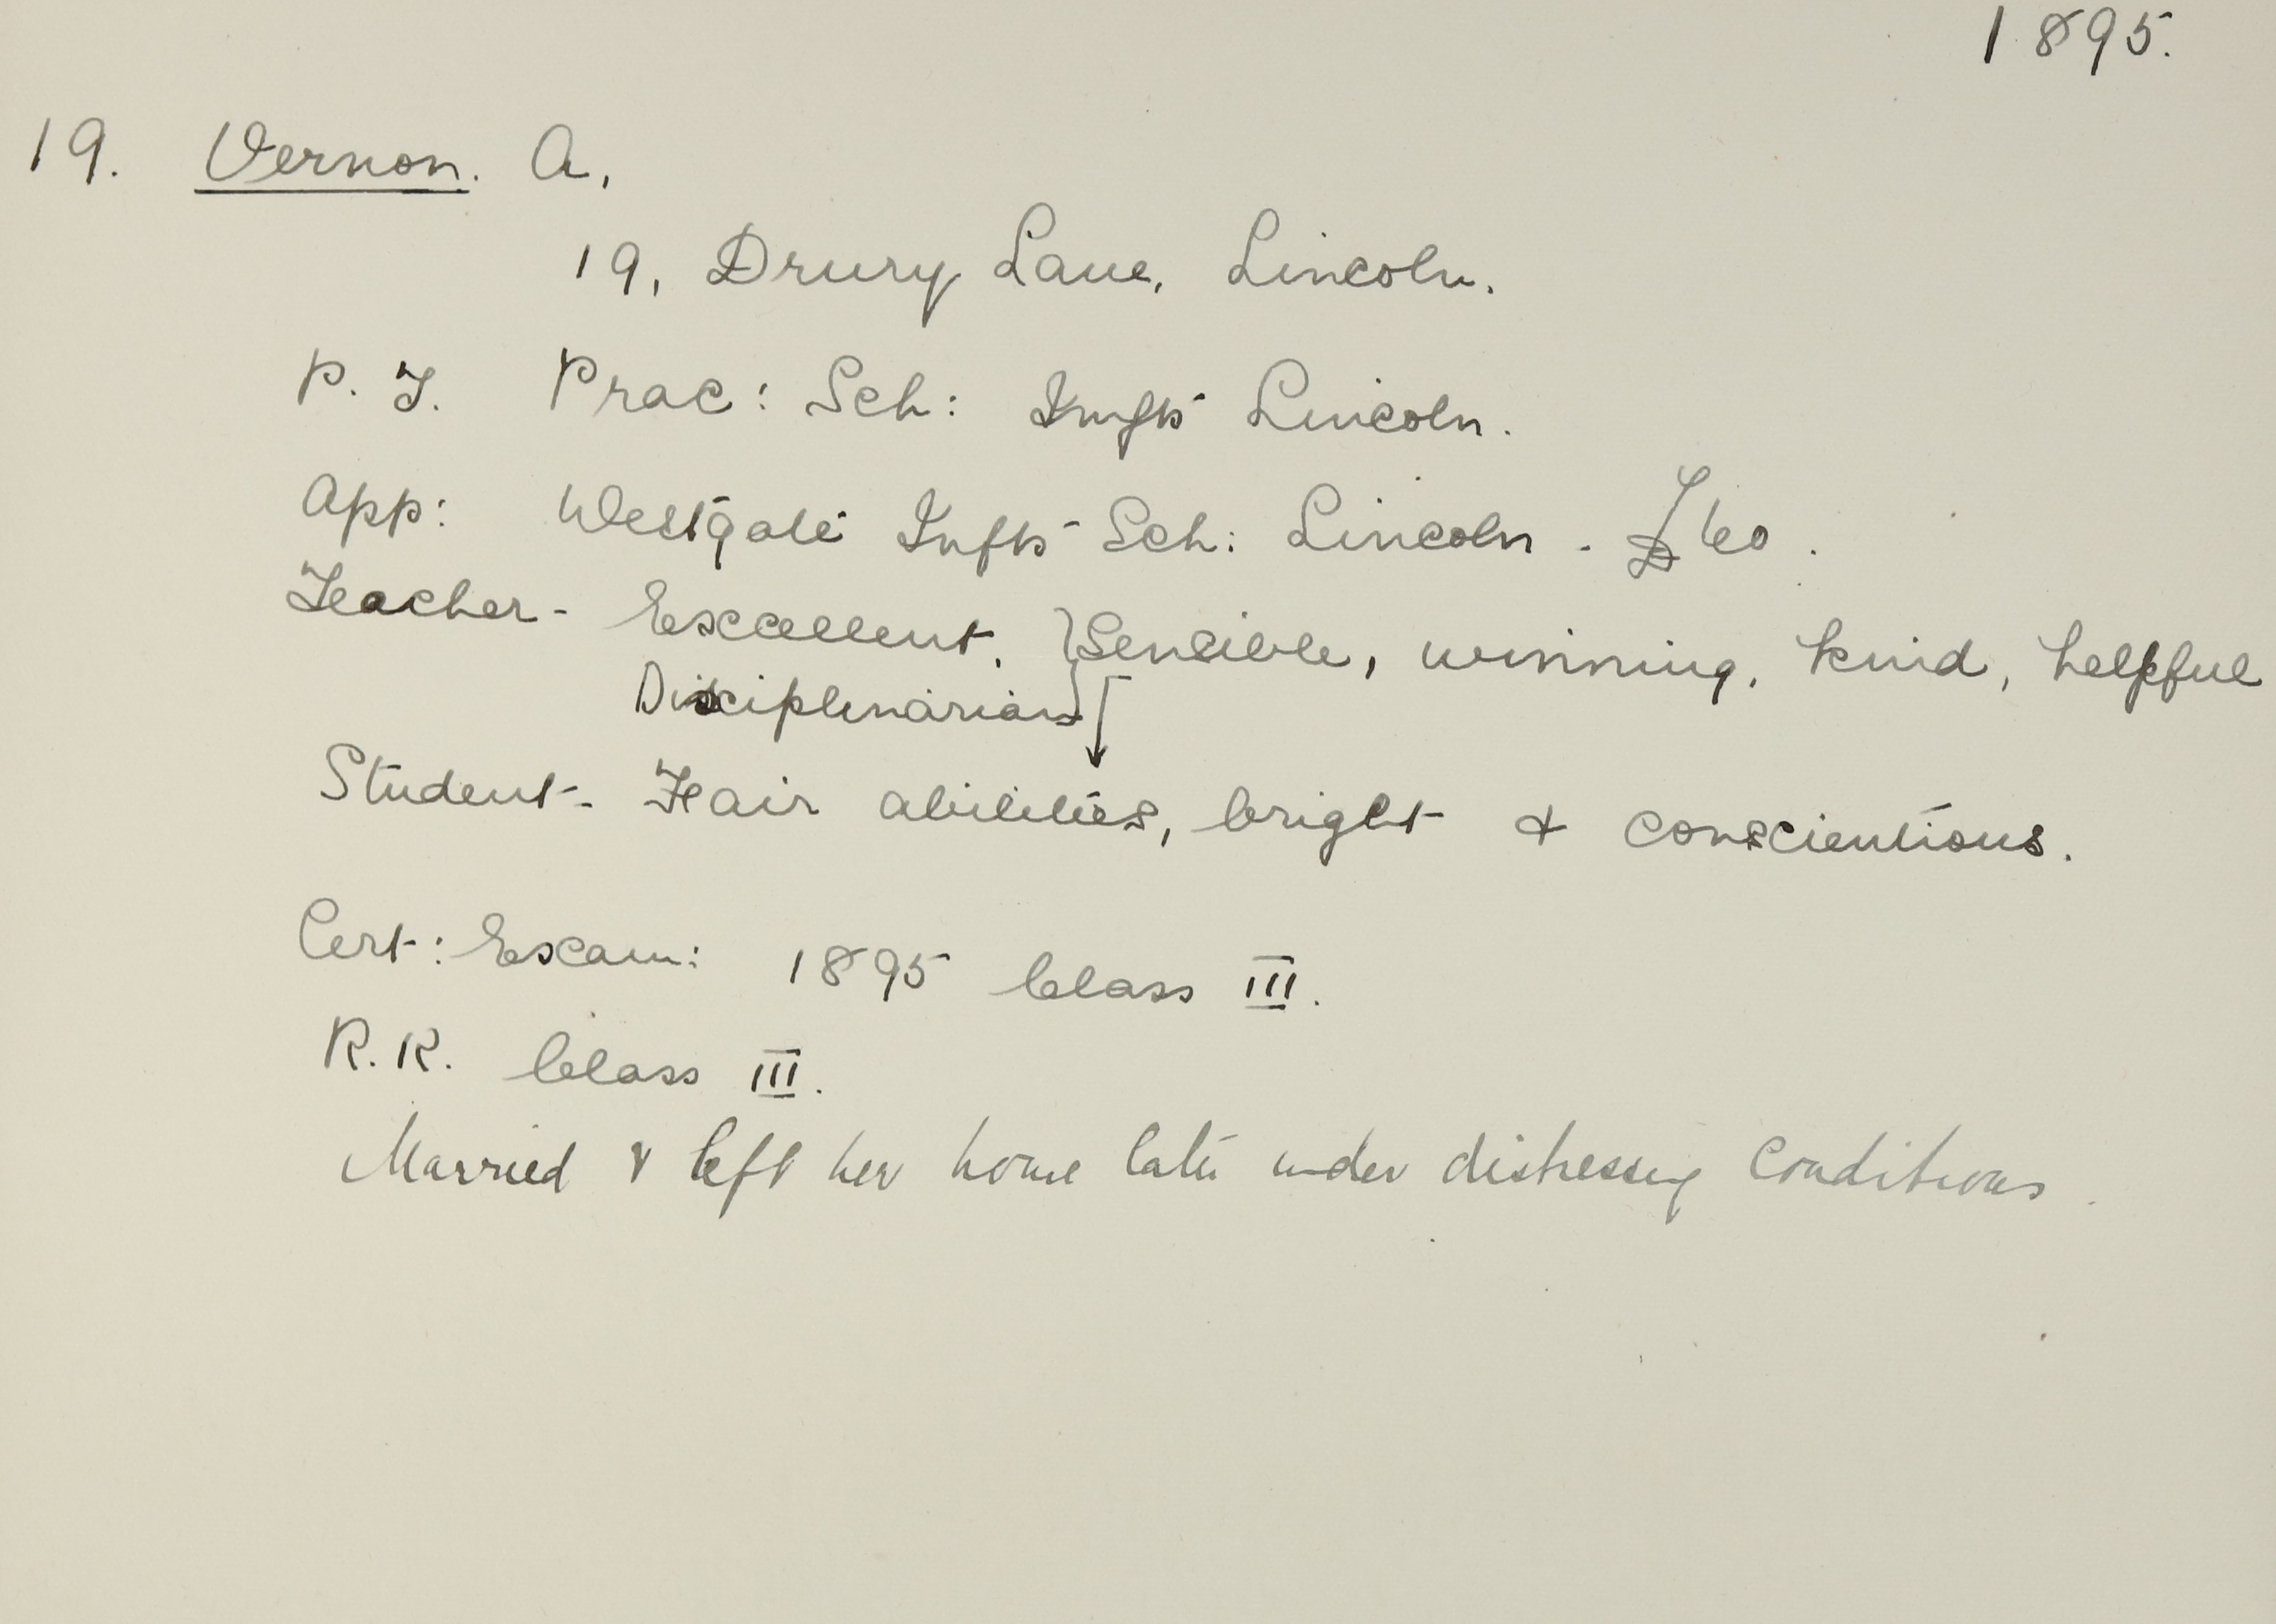 1895.
19. Vernon. A.
19, Drury Lane, Lincoln.
P. T. Prac: Sch: Infts Lincoln.
App: Westgate Infts Sch: Lincoln - £60.
Teacher - Excellent. } Sensible, winning, kind, helpful
Disciplinarian
Student - Fair abilities, bright & conscientious.
Cert: Exam: 1895 Class III.
R.K. Class III.
Married & left her home later under distressing conditions.